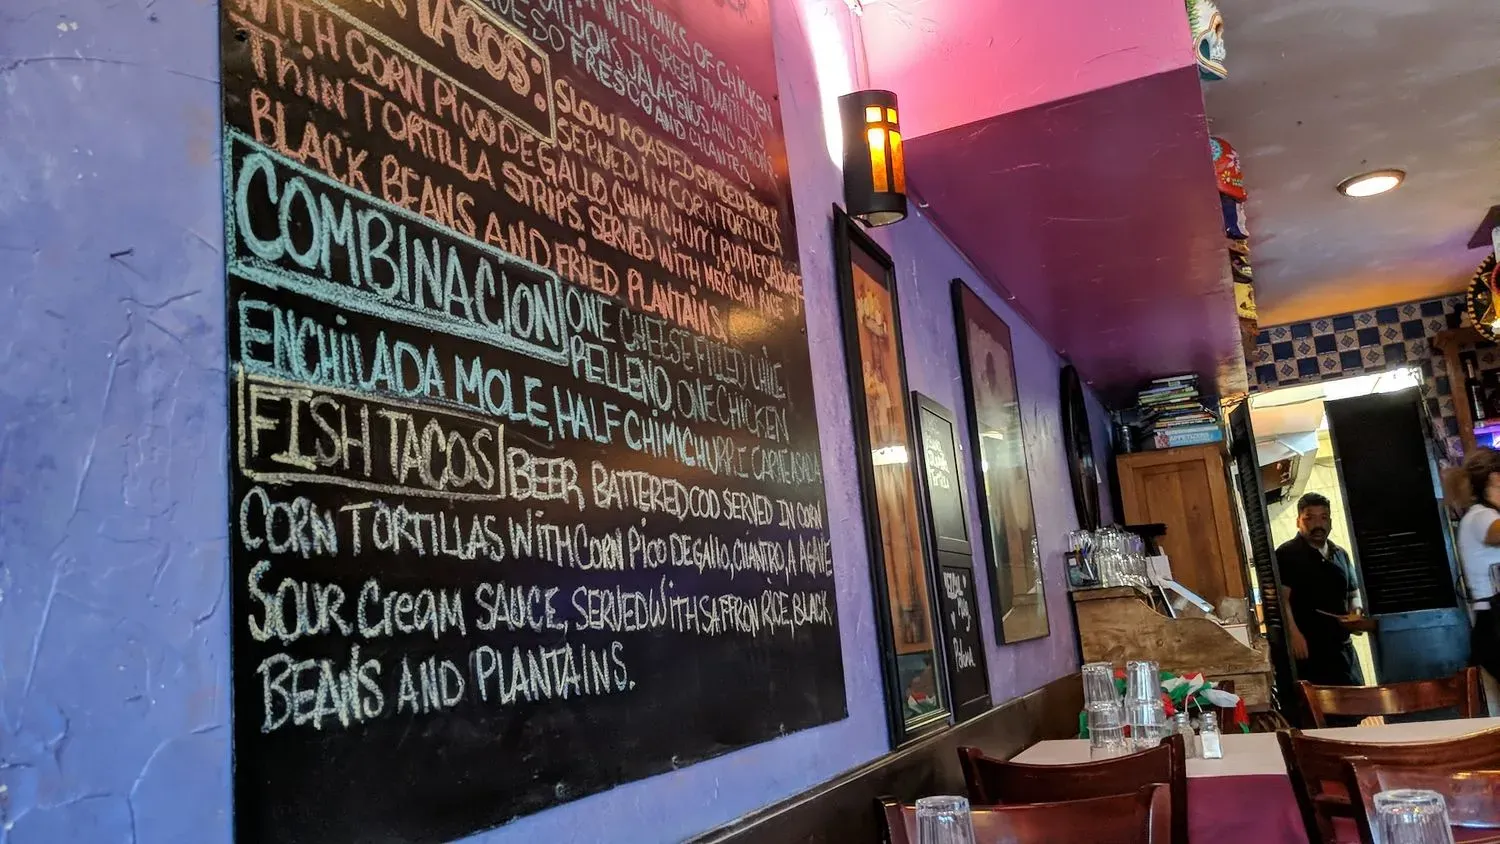 CHUNKS OF CHICKEN
WITH GREEN TOMATILLOS
JALAPEÑOS AND ONIONS
SO FRESCO AND CILANTRO.
TACOS: SLOW ROASTED SPICED PORK
SERVED IN CORN TORTILLA
WITH CORN PICO DE GALLO, CHIMICHURRI, PURPLE CABBAGE
THIN TORTILLA STRIPS. SERVED WITH MEXICAN RICE
BLACK BEANS AND FRIED PLANTAINS.
COMBINACION ONE CHEESE FILLED CHILE
RELLENO, ONE CHICKEN
ENCHILADA MOLE, HALF CHIMICHURRI CARNE ASADA
FISH TACOS BEER BATTERED COD SERVED IN CORN
CORN TORTILLAS WITH CORN PICO DE GALLO, CILANTRO, A AGAVE
SOUR CREAM SAUCE, SERVED WITH SAFFRON RICE, BLACK
BEANS AND PLANTAINS.